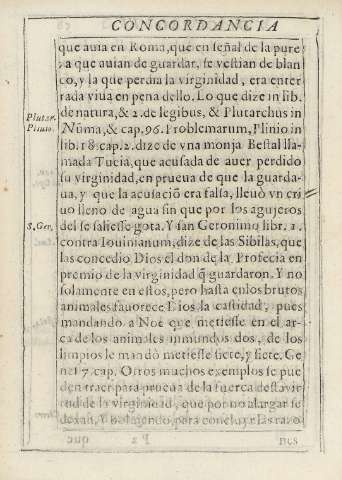 CONCORDANCIA
que auia en Roma, que en señal de la pure
za que auian de guardar, se vestian de blan
co, y la que perdia la virginidad, era enter
rada viua en pena dello. Lo que dize in lib.
de natura, & 2. de legibus, & Plutarchus in
Plutar.
Nũma, & cap. 96. Problemarum, Plinio in
Plinio.
lib. 18. cap. 2. dize de vna monja Bestal lla-
mada Tucia, que acusada de auer perdido
su virginidad, en prueua de que la guarda-
ua, y que la acusaciõ era falsa, lleuò vn cri
uo lleno de agua sin que por los agujeros
del se saliesse gota. Y san Geronimo libr. 1.
S. Ger.
contra Iouinianum, dize de las Sibilas, que
las concedio Dios el don de la Profecia en
premio de la virginidad q̃ guardaron. Y no
solamente en estos, pero hasta en los brutos
animales fauorece Dios la castidad, pues
mandando a Noe que metiesse en el ar-
ca de los animales inmundos dos, de los
limpios le mandò metiesse siete, y siete. Ge
nes. 7. cap. Otros muchos exemplos se pue
den traer para prueua de la fuerça desta vir
tud de la virginidad, que por no alargar se
dexan. Y boluiendo, para concluyr Esta razo
nes